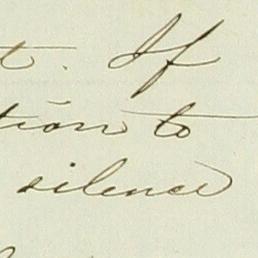 t. If
tion to
silence